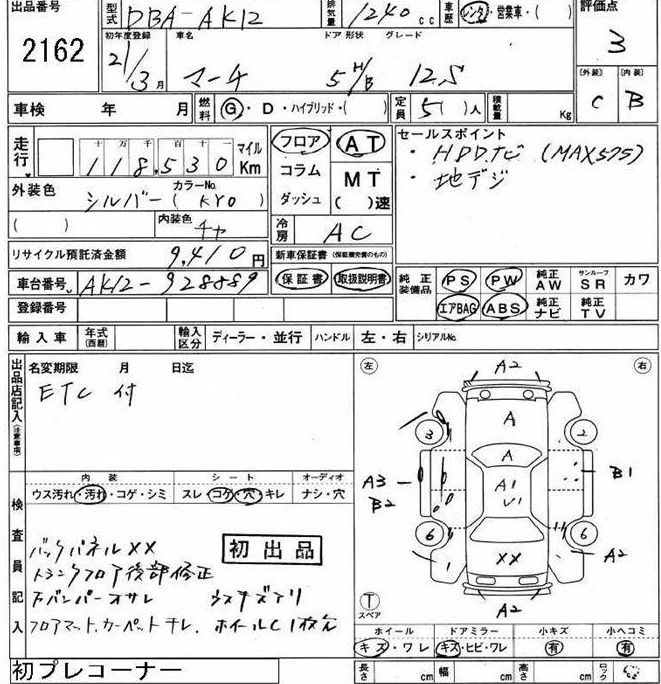 出品番号 2162
型式 DBA-AK12
排気量 1240 cc
車歴 レンタ・営業車・( )
評価点 3
初年度登録 21/3月
車名 マーチ
ドア 形状 5 H/B
グレード 12S
[外装] C [内装] B
車検 年 月
燃料 G・D・ハイブリッド・( )
定員 5( )人
積載量 Kg
走行 十万千百十一 118,530 マイル Km
フロア コラム ダッシュ
AT MT ( )速
セールスポイント
・HDDナビ (MAX575)
・地デジ
外装色 シルバー
カラーNo. (KY0)
( ) 内装色 チャ
冷房 AC
リサイクル預託済金額 9,410円
新車保証書 (保証継完備のもの)
保証書 取扱説明書
車台番号 AK12-928889
登録番号
純正装備品 PS PW 純正AW サンルーフSR カワ
エアBAG ABS 純正ナビ 純正TV
輸入車 年式(西暦) 輸入区分 ディーラー・並行 ハンドル 左・右 シリアルNo.
出品店記入(注意事項)
名変期限 月 日迄
ETC 付
内装 シート オーディオ
ウス汚れ・汚れ・コゲ・シミ スレ・コゲ・穴・キレ ナシ・穴
検査員記入
バックパネルXX
トランクフロア後部修正
初出品
下バンパーオサレ ウスキズアリ
フロアマット、カーペットキレ、ホイールC1枚欠
左 右
A2
A
3 2
A
A3 B2
A1
V1
B1
6 6
1
XX
A2
A2
T
スペア
ホイール ドアミラー 小キズ 小ヘコミ
キズ・ワレ キズ・ヒビ・ワレ 有 有
初プレコーナー
長さ cm 幅 cm 高さ cm ロック